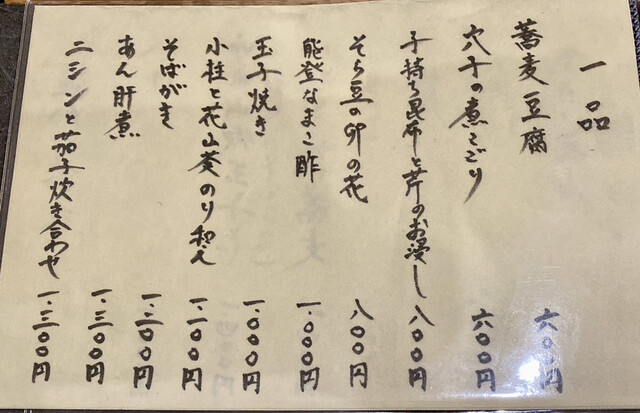 一品
蕎麦豆腐 六〇〇円
穴子の煮こごり 六〇〇円
子持ち昆布と芹のお浸し 八〇〇円
そら豆の卯の花 八〇〇円
能登なまこ酢 一、〇〇〇円
玉子焼き 一、〇〇〇円
小柱と花山葵のり和え 一、二〇〇円
そばがき 一、二〇〇円
あん肝煮 一、三〇〇円
ニシンと茄子炊き合わせ 一、三〇〇円